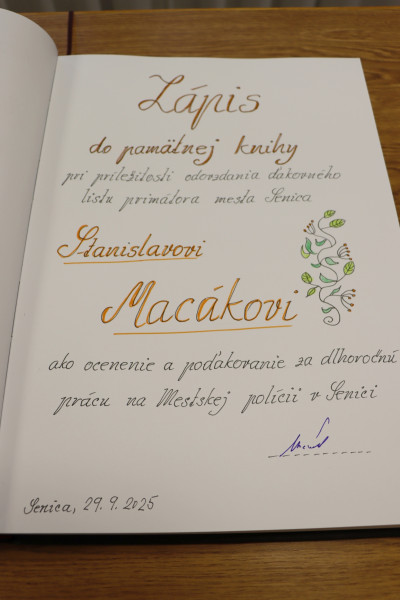 Zápis
do pamätnej knihy
pri príležitosti odovzdania ďakovného
listu primátora mesta Senica
Stanislavovi
Macákovi
ako ocenenie a poďakovanie za dlhoročnú
prácu na Mestskej polícii v Senici
Senica, 29. 9. 2025